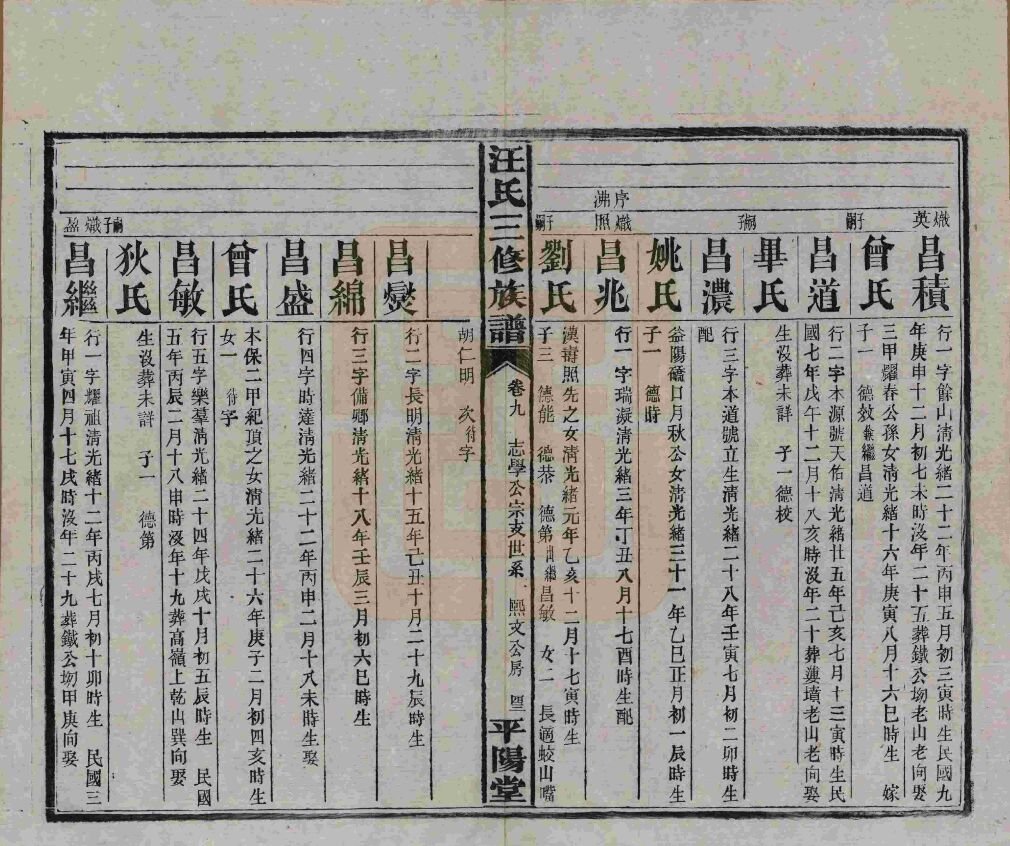 熾英
昌積
行一字餘山清光緒二十二年丙申五月初三寅時生民國九
年庚申十二月初七未時沒年二十五葬鐵公坳老山老向娶
曾氏
三甲耀春公孫女清光緒十六年庚寅八月十六巳時生　嫁
子一　德效兼繼昌道
子嗣
昌道
行二字本源號天佑清光緒廿五年己亥七月十三寅時生民
國七年戊午十二月十八亥時沒年二十葬蓮墳老山老向娶
畢氏
生沒葬未詳　子一德校
嗣子
昌濃
行三字本道號立生清光緒二十八年壬寅七月初二卯時生
配
姚氏
益陽礄口月秋公女清光緒三十一年乙巳正月初一辰時生
子一　德時
序沸
熾照
昌兆
行一字瑞凝清光緒三年丁丑八月十七酉時生配
子嗣
劉氏
漢壽照先之女清光緒元年乙亥十二月十七寅時生
子三　德能　德恭　德第出繼昌敏　女二　長適蛟山嘴
汪氏三修族譜
卷九　志學公宗支世系　熙文公房
平陽堂
胡仁明　次待字
昌爕
行二字長明清光緒十五年己丑十月二十九辰時生
昌綿
行三字備鄉清光緒十八年壬辰三月初六巳時生
昌盛
行四字時達清光緒二十二年丙申二月十八未時生娶
曾氏
本保二甲紀頂之女清光緒二十六年庚子二月初四亥時生
女一　待字
昌敏
行五字樂羣清光緒二十四年戊戌十月初五辰時生　民國
五年丙辰二月十八申時沒年十九葬高嶺上乾山巽向娶
狄氏
生沒葬未詳　子一　德第
嗣子
熾盈
昌繼
行一字耀祖清光緒十二年丙戌七月初十卯時生　民國三
年甲寅四月十七戌時沒年二十九葬鐵公坳甲庚向娶